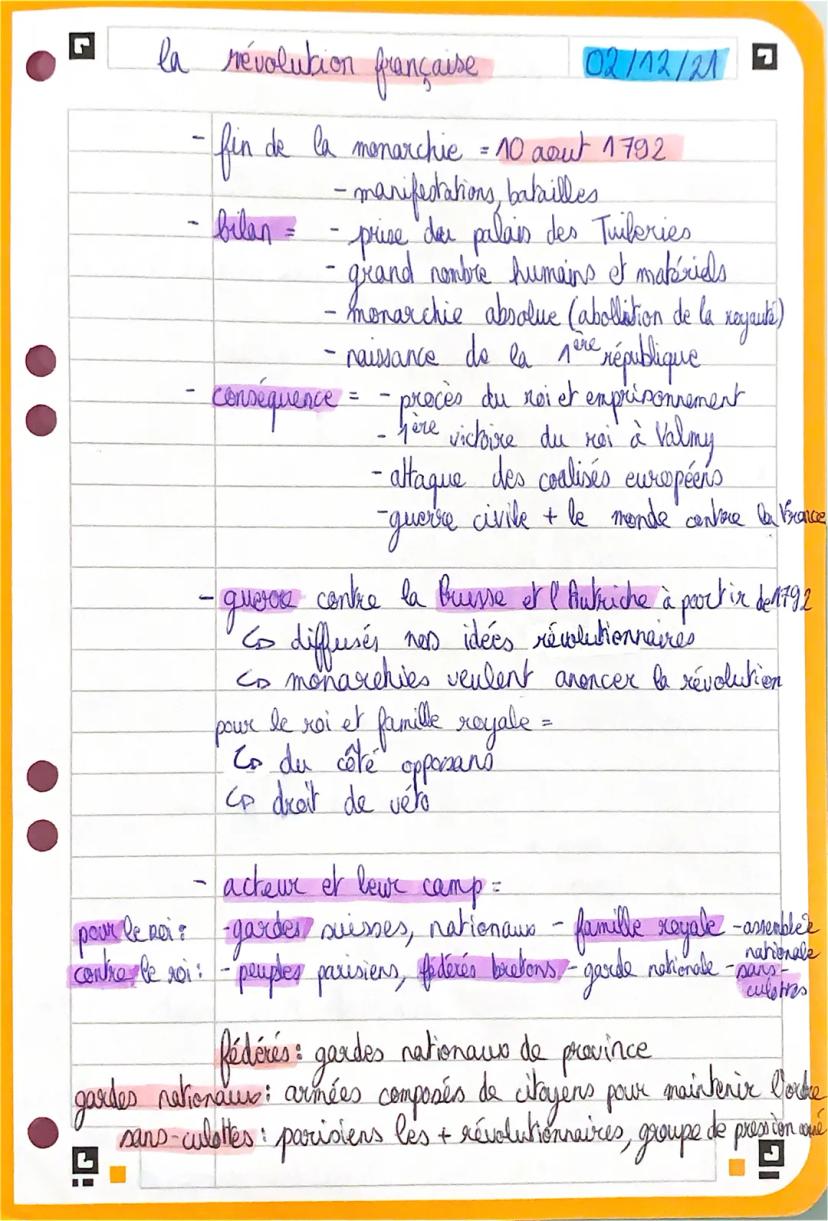 la révolution française 02/12/21
- fin de la monarchie = 10 aout 1792
- manifestations, batailles
- bilan = - prise du palais des Tuileries
- grand nombre humains et matériels
- monarchie absolue (abollition de la royauté)
- naissance de la 1ère république
- conséquence = - procès du roi et emprisonnement
- 1ère victoire du roi à Valmy
- attaque des coalisés européens
- guerre civile + le monde contre la France
- guerre contre la Prusse et l'Autriche à partir de 1792
↳ diffusés nos idées révolutionnaires
↳ monarchies veulent anoncer la révolution
pour le roi et famille royale =
↳ du côté opposans
↳ droit de véto
- acteur et leur camp =
pour le roi : - gardes suisses, nationaux - famille royale - assemblée nationale
contre le roi : - peuples parisiens, fédérés bretons - garde nationale - sans-culottes
fédérés : gardes nationaux de province
gardes nationaux : armées composés de citoyens pour maintenir l'ordre
sans-culottes : parisiens les + révolutionnaires, groupe de pression